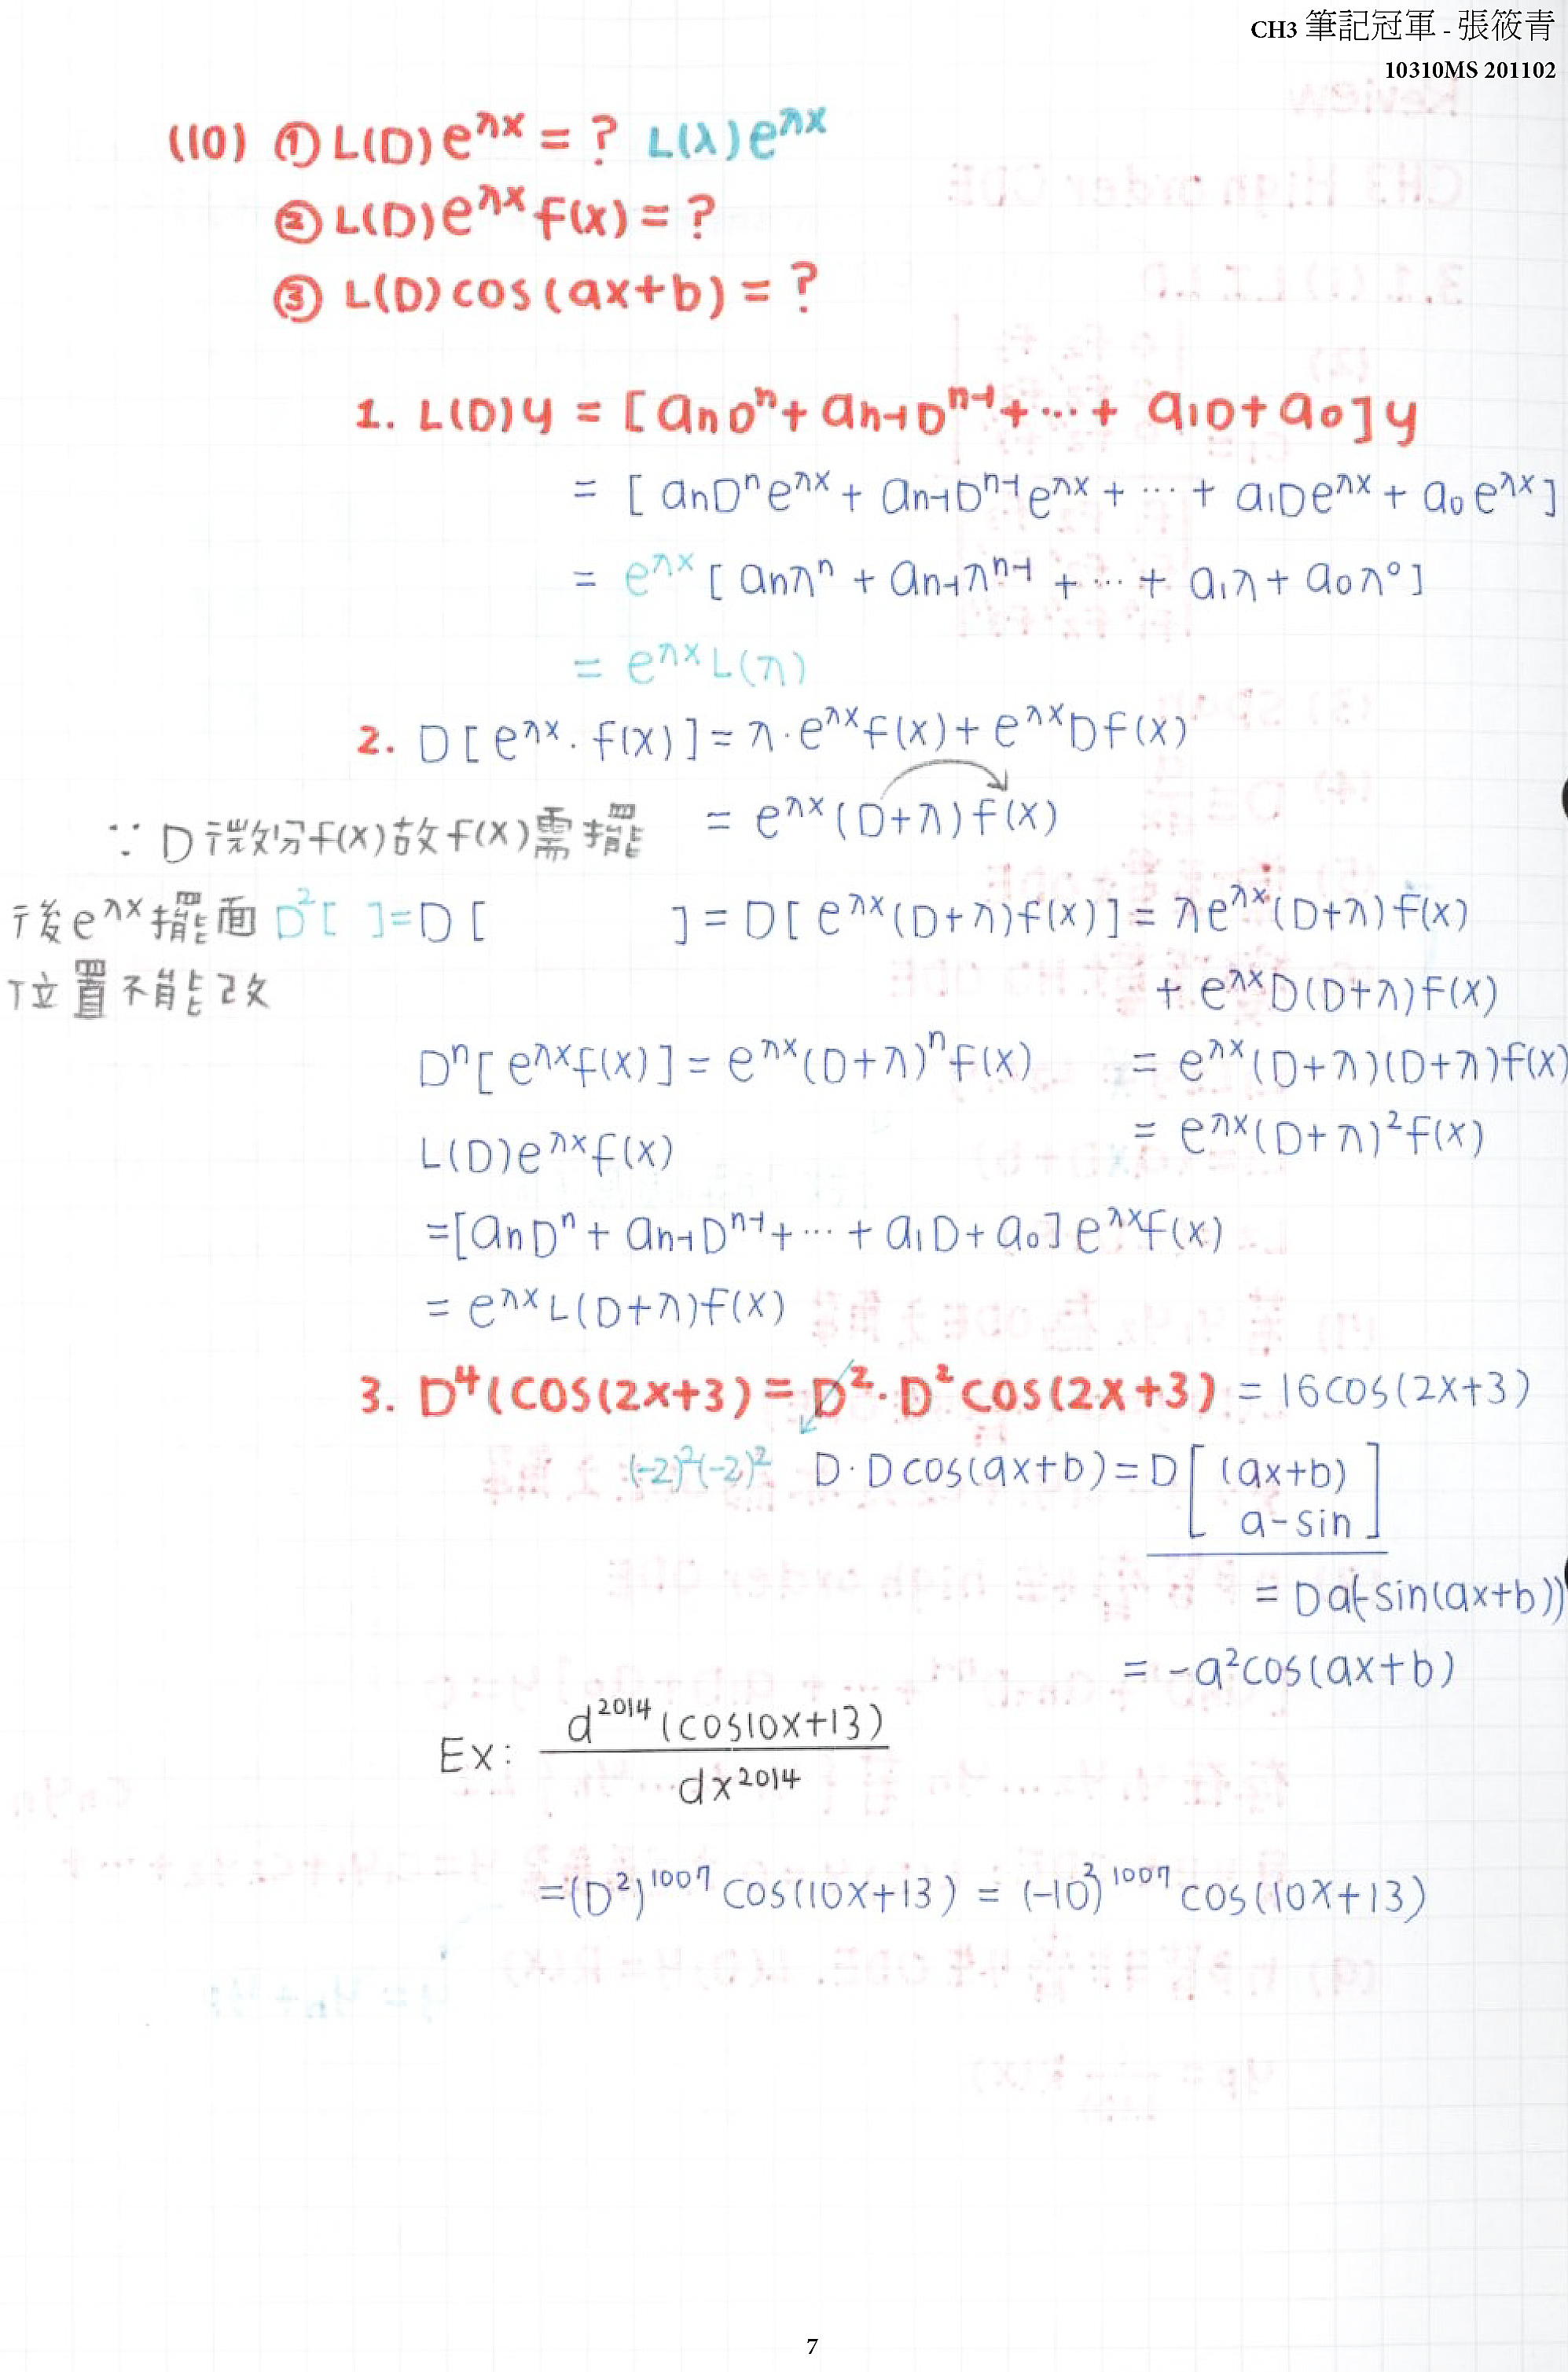 CH3 筆記冠軍 - 張筱青
10310MS 201102
(10) ① L(D)e^λx = ? L(λ)e^λx
② L(D)e^λx f(x) = ?
③ L(D)cos(ax+b) = ?
1. L(D)y = [anD^n + an-1D^n-1 + ⋯ + a1D + a0]y
= [anD^n e^λx + an-1D^n-1 e^λx + ⋯ + a1De^λx + a0e^λx]
= e^λx [anλ^n + an-1λ^n-1 + ⋯ + a1λ + a0λ^0]
= e^λx L(λ)
2. D[e^λx · f(x)] = λ · e^λx f(x) + e^λx Df(x)
= e^λx (D+λ)f(x)
∵ D 微分f(x)故f(x)需擺
後e^λx擺面 D^2[ ]=D[ ] = D[e^λx(D+λ)f(x)] = λe^λx(D+λ)f(x)
位置不能改
+ e^λx D(D+λ)f(x)
D^n[e^λx f(x)] = e^λx(D+λ)^n f(x) = e^λx(D+λ)(D+λ)f(x)
= e^λx(D+λ)^2 f(x)
L(D)e^λx f(x)
=[anD^n + an-1D^n-1 + ⋯ + a1D + a0]e^λx f(x)
= e^λx L(D+λ)f(x)
3. D^4(cos(2x+3) = D^2 · D^2 cos(2x+3) = 16cos(2x+3)
(-2)^2(-2)^2 D·Dcos(ax+b) = D[(ax+b)
a-sin]
= Da(-sin(ax+b))
= -a^2cos(ax+b)
Ex: d^2014 (cos10x+13)
dx^2014
=(D^2)^1007 cos(10x+13) = (-10^2)^1007 cos(10x+13)
7